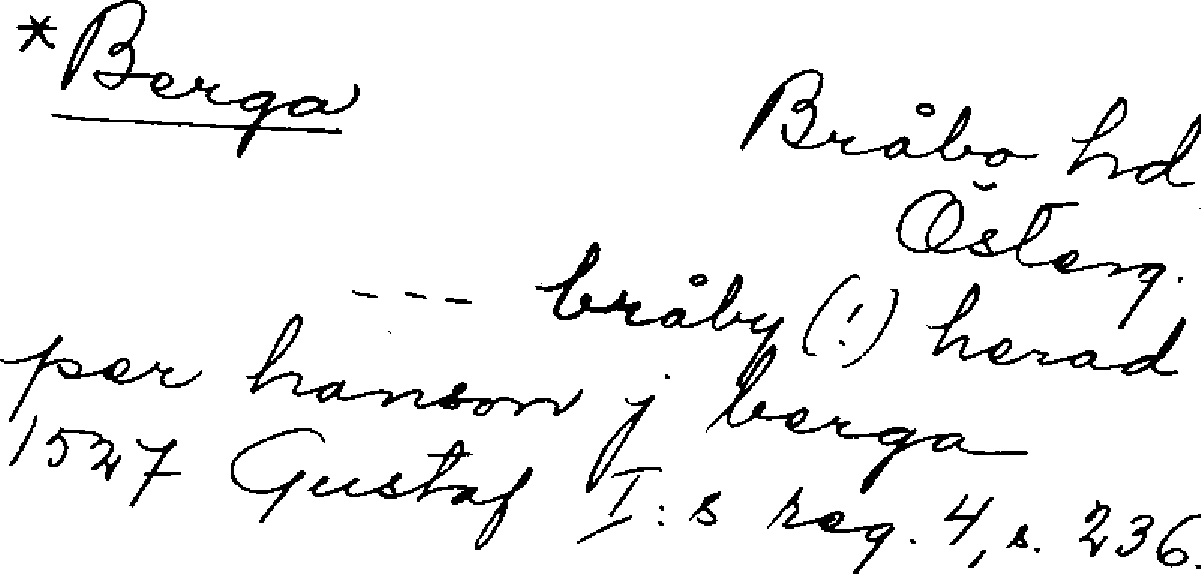 *Berga
Bråbo hd
Österg.
--- bråby (!) herad
per hanson j berga
1527 Gustaf I:s reg. 4, s. 236.